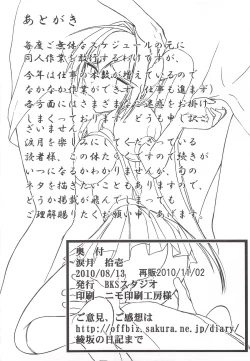 あとがき
毎度ご無体なスケジュールの元に
同人作業を敢行するわけですが、
今年は仕事の本数が増えているので
なかなか作業ができず(仕事も進まず)
各方面にはさまざまなご迷惑をお掛け
しまくっております。どうも申し訳ご
ざいません。
涙月を楽しみにしてくださっている
読者様、この体たらくですので続きが
いつになるかわかりませんが、旬の
ネタを描きたいこともありますので、
どうか掲載が飛んでしまっても
ご理解賜りたくお願い申しあげます。
奥付
～涙月 拾壱～
2010/08/13 再販2010/11/02
発行 BKSスタジオ
印刷 ニモ印刷工房様
ご意見、ご感想は
http://offbiz.sakura.ne.jp/diary/
綾坂の日記まで